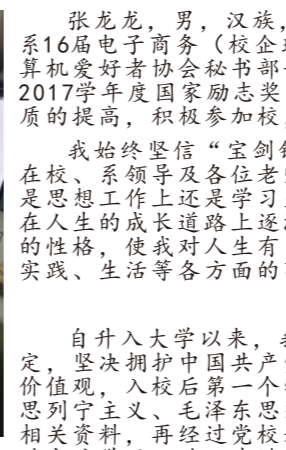 张龙龙，男，汉族，
系16届电子商务（校企
算机爱好者协会秘书部
2017学年度国家励志奖
质的提高，积极参加校，
我始终坚信“宝剑锋
在校、系领导及各位老师
是思想工作上还是学习
在人生的成长道路上逐
的性格，使我对人生有
实践、生活等各方面的
自升入大学以来，我
定，坚决拥护中国共产党
价值观，入校后第一个
思列宁主义、毛泽东思想
相关资料，再经过党校